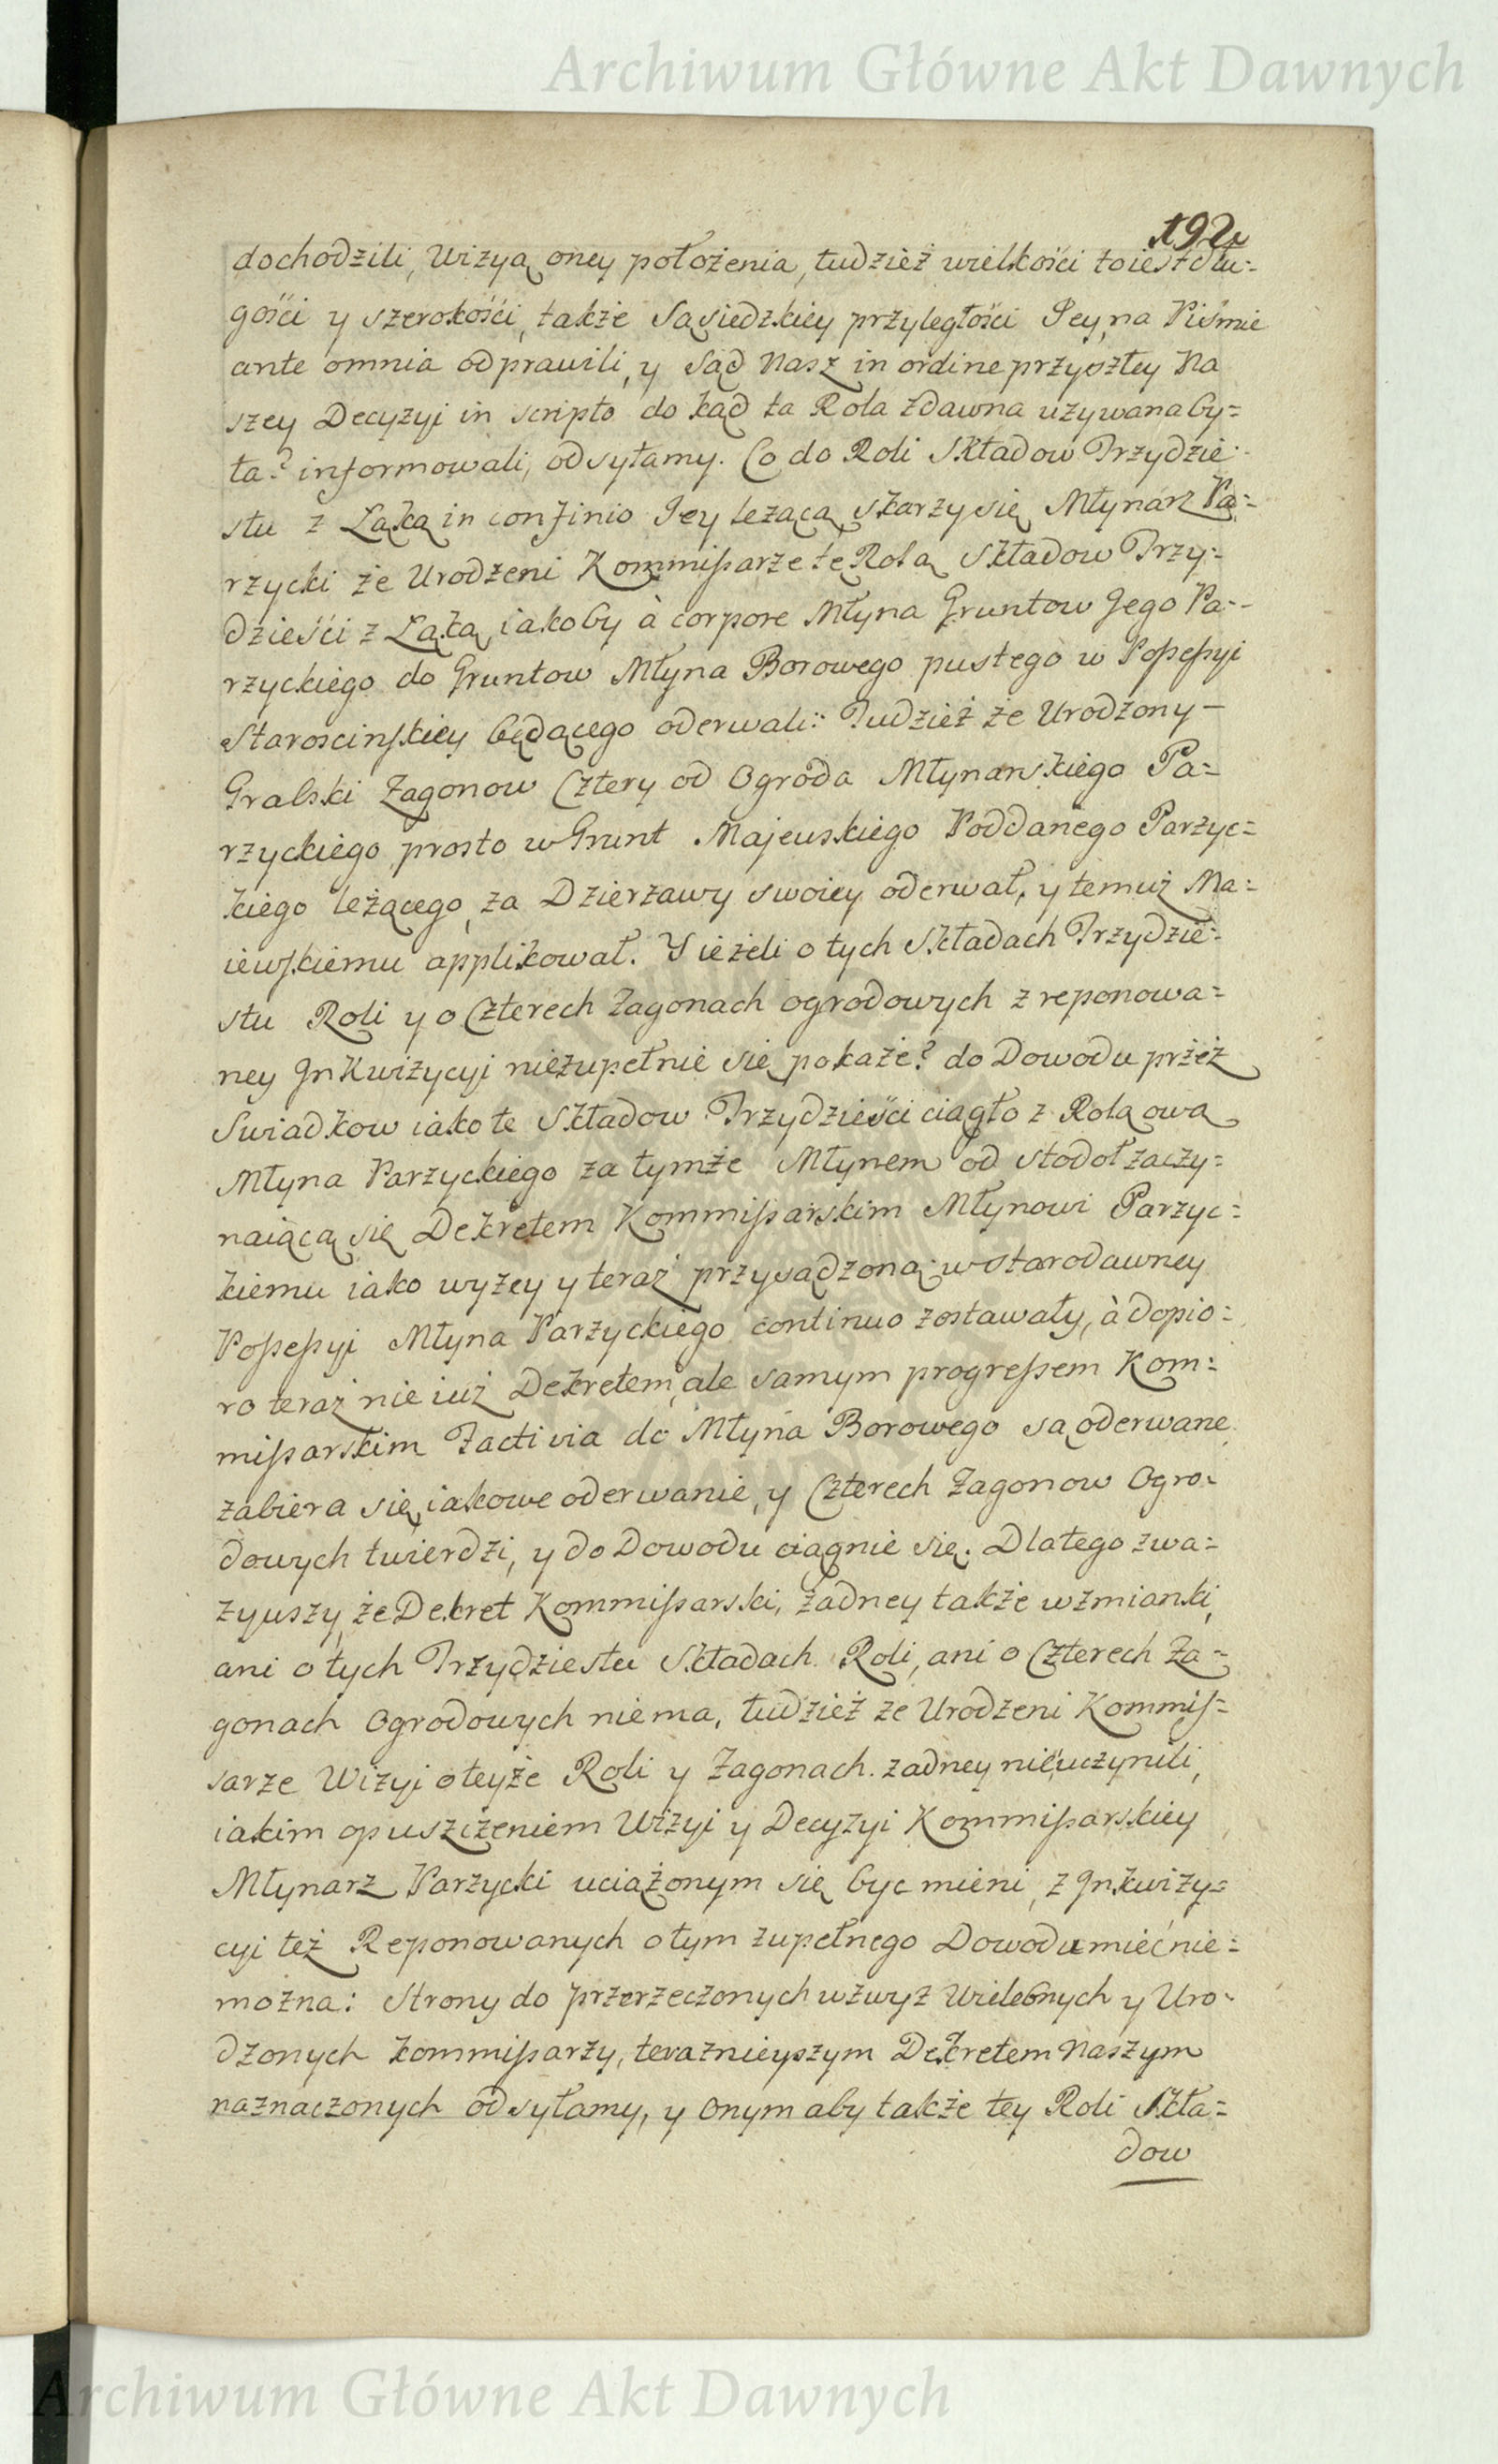 Archiwum Główne Akt Dawnych
192
dochodzili, Wizyą oney położenia, tudzież wielkości to iest dłu=
gości y szerokości, także Sąsiedzkiey przyległości Jey, na Piśmie
ante omnia odprawili, y Sąd Nasz in ordine przyszłey Na
szey Decyzyi in scripto do kąd ta Rola zdawna używana by=
ła? informowali, odsyłamy. Co do Roli Składow Trzydzie=
stu z Łąką in confinio Jey leżącą, skarży się Młynarz Pa=
rzycki że Urodzeni Kommissarze tę Rolą Składow Trzy=
dzieści z Łąką, iakoby à corpore Młyna Gruntow Jego Pa=
rzyckiego do Gruntow Młyna Borowego pustego w Possessyi
Starościnskiey będącego oderwali: Tudzież że Urodzony
Gralski Zagonow Cztery od Ogroda Młynarskiego Pa=
rzyckiego prosto w Grunt Majewskiego Poddanego Parzyc=
kiego leżącego, za Dzierzawy swoiey oderwał, y temuż Ma=
iewskiemu applikował. Y ieżeli o tych Składach Trzydzie=
stu Roli y o Czterech Zagonach ogrodowych z reponowa=
ney Jnkwizycyi niezupełnie się pokaże? do Dowodu przez
Swiadkow iako te Składow Trzydzieści ciągło z Rolą ową
Młyna Parzyckiego za tymże Młynem od stodoł zaczy=
naiącą się Dekretem Kommissarskim Młynowi Parzyc=
kiemu iako wyzey y teraz przysądzoną w starodawney
Possessyi Młyna Parzyckiego continuo zostawały, à dopio=
ro teraz nie iuż Dekretem, ale samym progressem Kom=
missarskim Zactivia do Młyna Borowego są oderwane
zabiera się, iakowe oderwanie, y Czterech Zagonow Ogro=
dowych twierdzi, y do Dowodu ciągnie się. Dlatego zwa=
żywszy, że Dekret Kommissarski, żadney także wzmianki,
ani o tych Trzydziestu Składach Roli, ani o Czterech Za=
gonach Ogrodowych niema, tudzież ze Urodzeni Kommis=
sarze Wizyi oteyże Roli y Zagonach. zadney nieuczynili,
iakim opuszczeniem Wizyi y Decyzyi Kommissarskiey
Młynarz Parzycki uciążonym się byc mieni, z Jnkwizy=
cyi też Reponowanych otym zupełnego Dowodu mieć nie=
można: Strony do przerzeczonych wzwyz Wielebnych y Uro=
dzonych Kommissarzy, teraznieyszym Dekretem Naszym
naznaczonych odsyłamy, y Onym aby także tey Roli Skła=
dow
Archiwum Główne Akt Dawnych